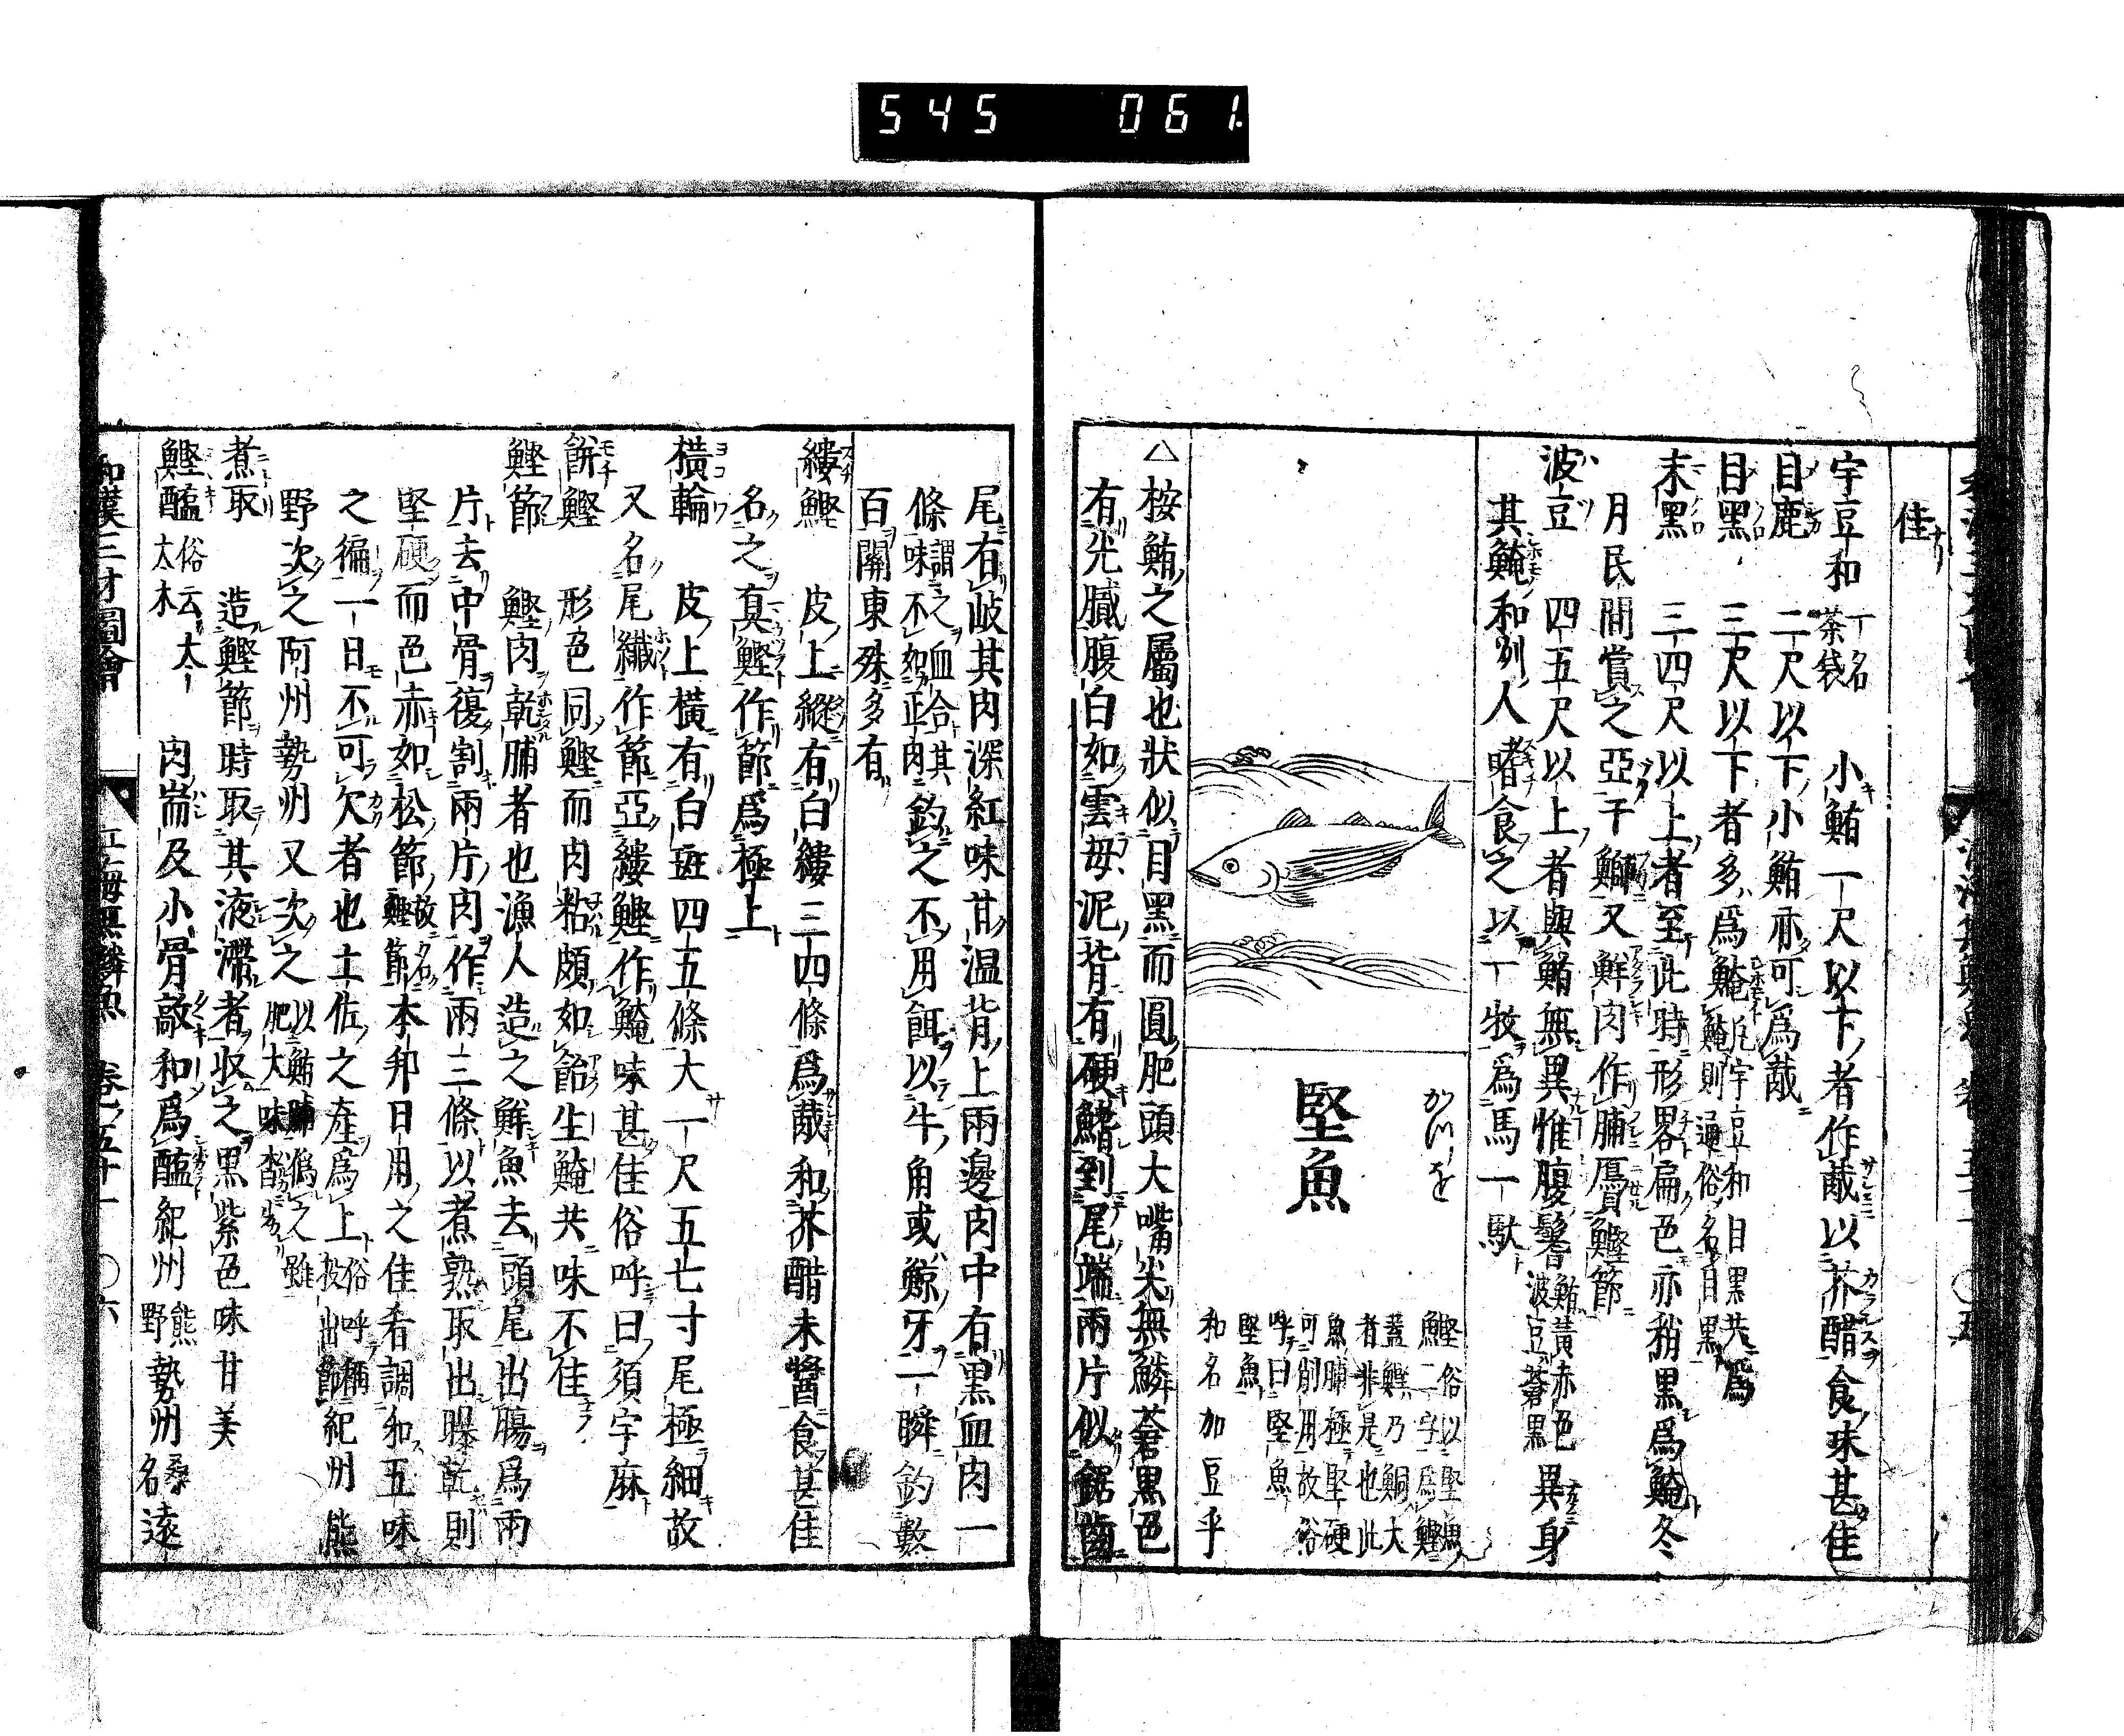 545 061
佳
宇豆和 一名茶袋 小鮪一尺以下者作胾以芥醋食味甚佳
目鹿 二尺以下小鮪亦可爲胾
目黑 三尺以下者多爲鰹
末黑 三四尺以上者至此時形畧扁色亦稍黑爲䱋冬
月民間賞之亞于鰤又鮮肉作脯贋鰹節
波豆 四五尺以上者與鮪無異惟腹鬐 鮪黃赤色波豆蒼黑 異身
其䱋和州人嗜食之以一枚爲馬一駄
かつを
堅魚
鰹 俗以堅魚二字爲鰹
蓋鰹乃鮦大者非是也此
魚脯極堅硬可削用故俗
呼曰堅魚
堅魚
和名加豆乎
△按鮪之屬也狀似目黑而圓肥頭大嘴尖無鱗蒼黑色
有光膩腹白如雲母泥背有硬鰭到尾端兩片似鋸齒
尾有岐其肉深紅味甘溫背上兩邊肉中有黑血肉一
條 謂之血合其味不如正肉 釣之不用餌以牛角或鯨牙一瞬釣數
百關東殊多有
縷鰹 皮上縱有白縷三四條爲胾和芥醋未醬食甚佳
名之眞鰹作節爲極上
橫輪 皮上橫有白斑四五條大一尺五七寸尾極細故
又名尾纎作節亞縷鰹作䱋味甚佳俗呼曰須宇麻
餠鰹 形色同鰹而肉粘頗如飴生䱋共味不佳
鰹節 鰹肉乾脯者也漁人造之鮮魚去頭尾出腸爲兩
片去中骨復割兩片肉作兩三條以煮熟取出曝乾則
堅硬而色赤如松節 故名鰹節 本邦日用之佳肴調和五味
之徧一日不可欠者也土佐之產爲上 俗呼稱投出節 紀州熊
野次之阿州勢州又次之 以鮪脯僞之雖肥大味不
煮取 造鰹節時取其液滯者收之黑紫色味甘美
鰹醢 俗云太太木 肉耑及小骨敲和爲醢紀州 熊野 勢州 桑名 遠
和漢三才圖會 江海無鱗魚 卷五十一 〇六